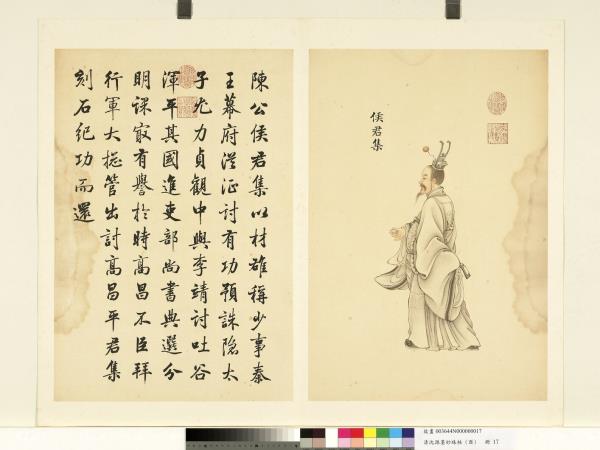 侯君集
陳公侯君集以材雄稱少事秦
王幕府從征討有功預誅隐太
子尤力貞觀中與李靖討吐谷
渾平其國進吏部尚書典選分
明課最有譽於時高昌不臣拜
行軍大捴管出討高昌平君集
刻石紀功而還
故畫 003644N000000017
清沈源墨妙珠林（酉） 冊 17